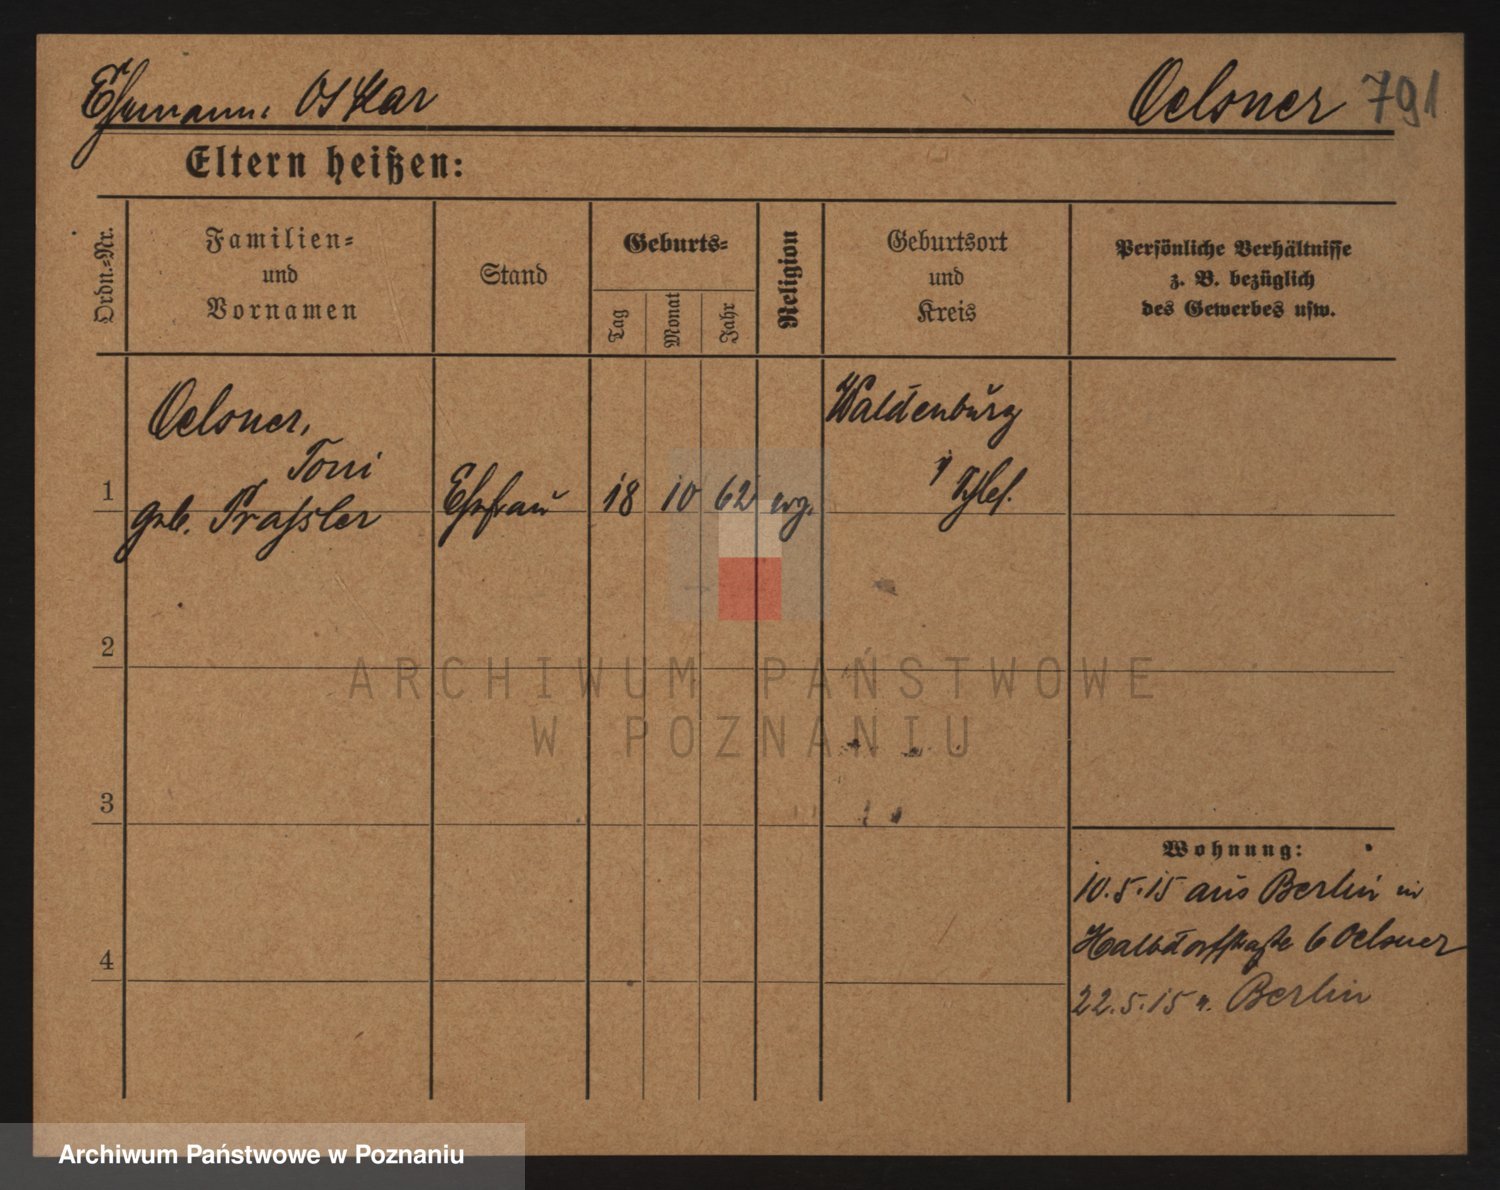 Ehemann: Oskar Oelsner 791
Eltern heißen:
Ordn.-Nr.
Familien-
und
Vornamen
Stand
Geburts-
Tag
Monat
Jahr
Religion
Geburtsort
und
Kreis
Persönliche Verhältnisse
z. B. bezüglich
des Gewerbes usw.
Oelsner,
Toni
geb. Prassler
1
Ehefrau
18
10
62
evg.
Waldenburg
i/Schles.
2
3
4
Wohnung:
10.5.15 aus Berlin in
Halbdorfstraße 6 Oelsner
22.5.15 n. Berlin
ARCHIWUM PAŃSTWOWE
W POZNANIU
Archiwum Państwowe w Poznaniu